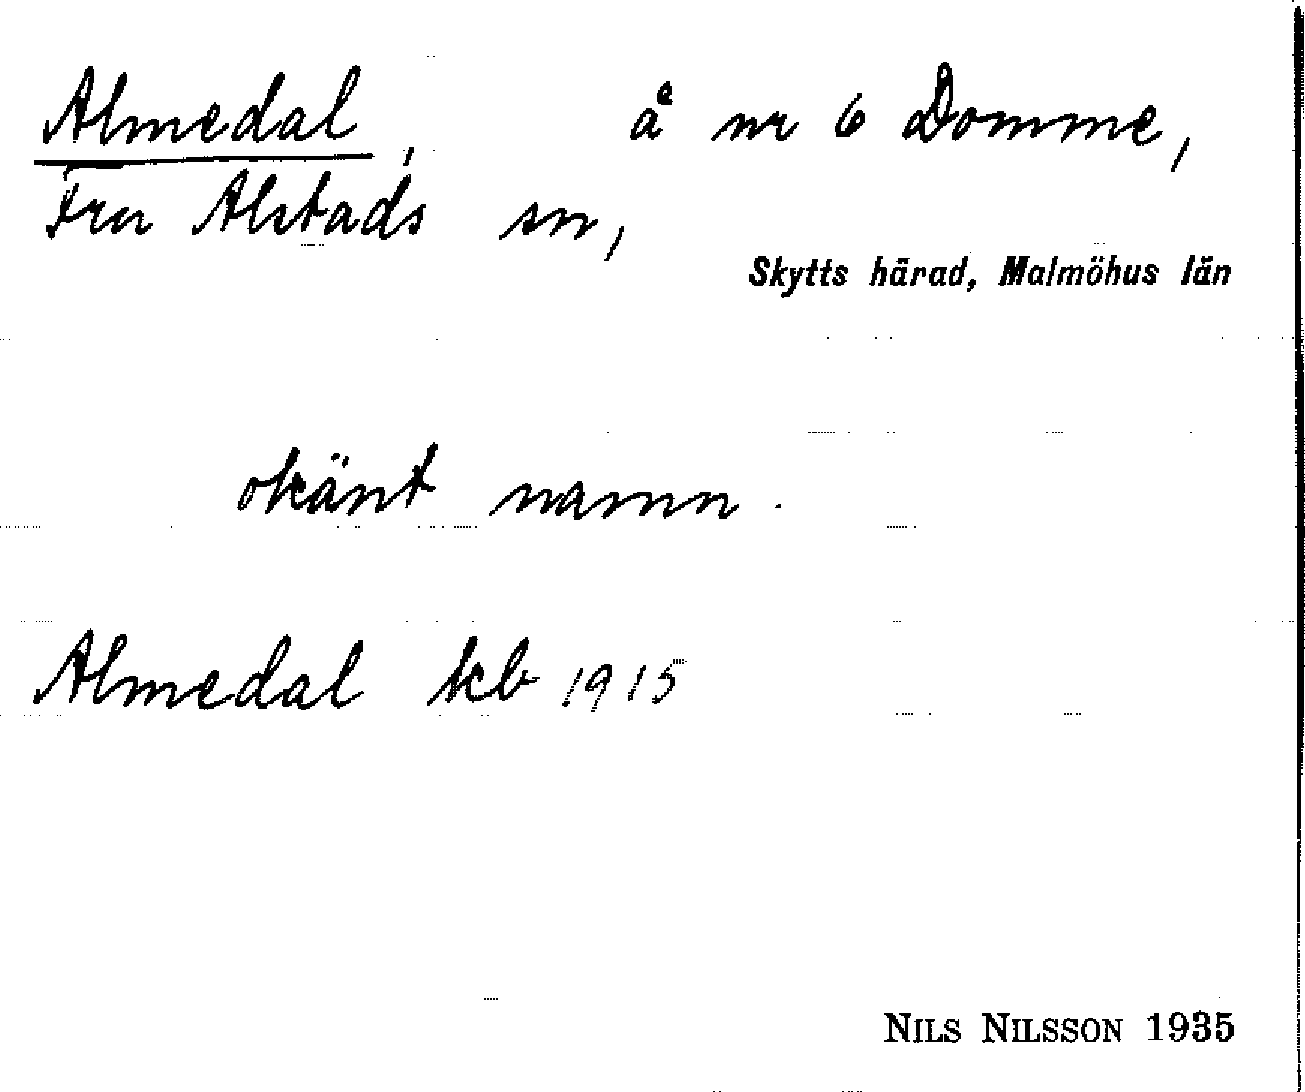 Almedal, å nr 6 Domme,
Fru Alstads sn,
Skytts härad, Malmöhus län
okänt namn.
Almedal kb 1915
NILS NILSSON 1935